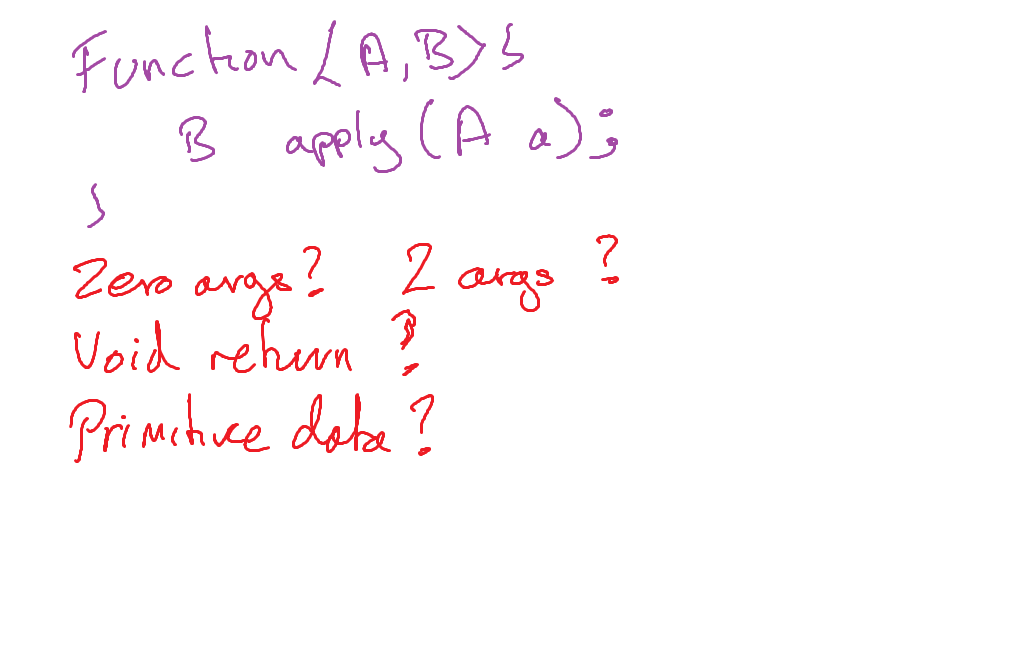 Function<A,B>{
B apply(A a);
}
Zero args? 2 args?
Void return?
Primitive data?